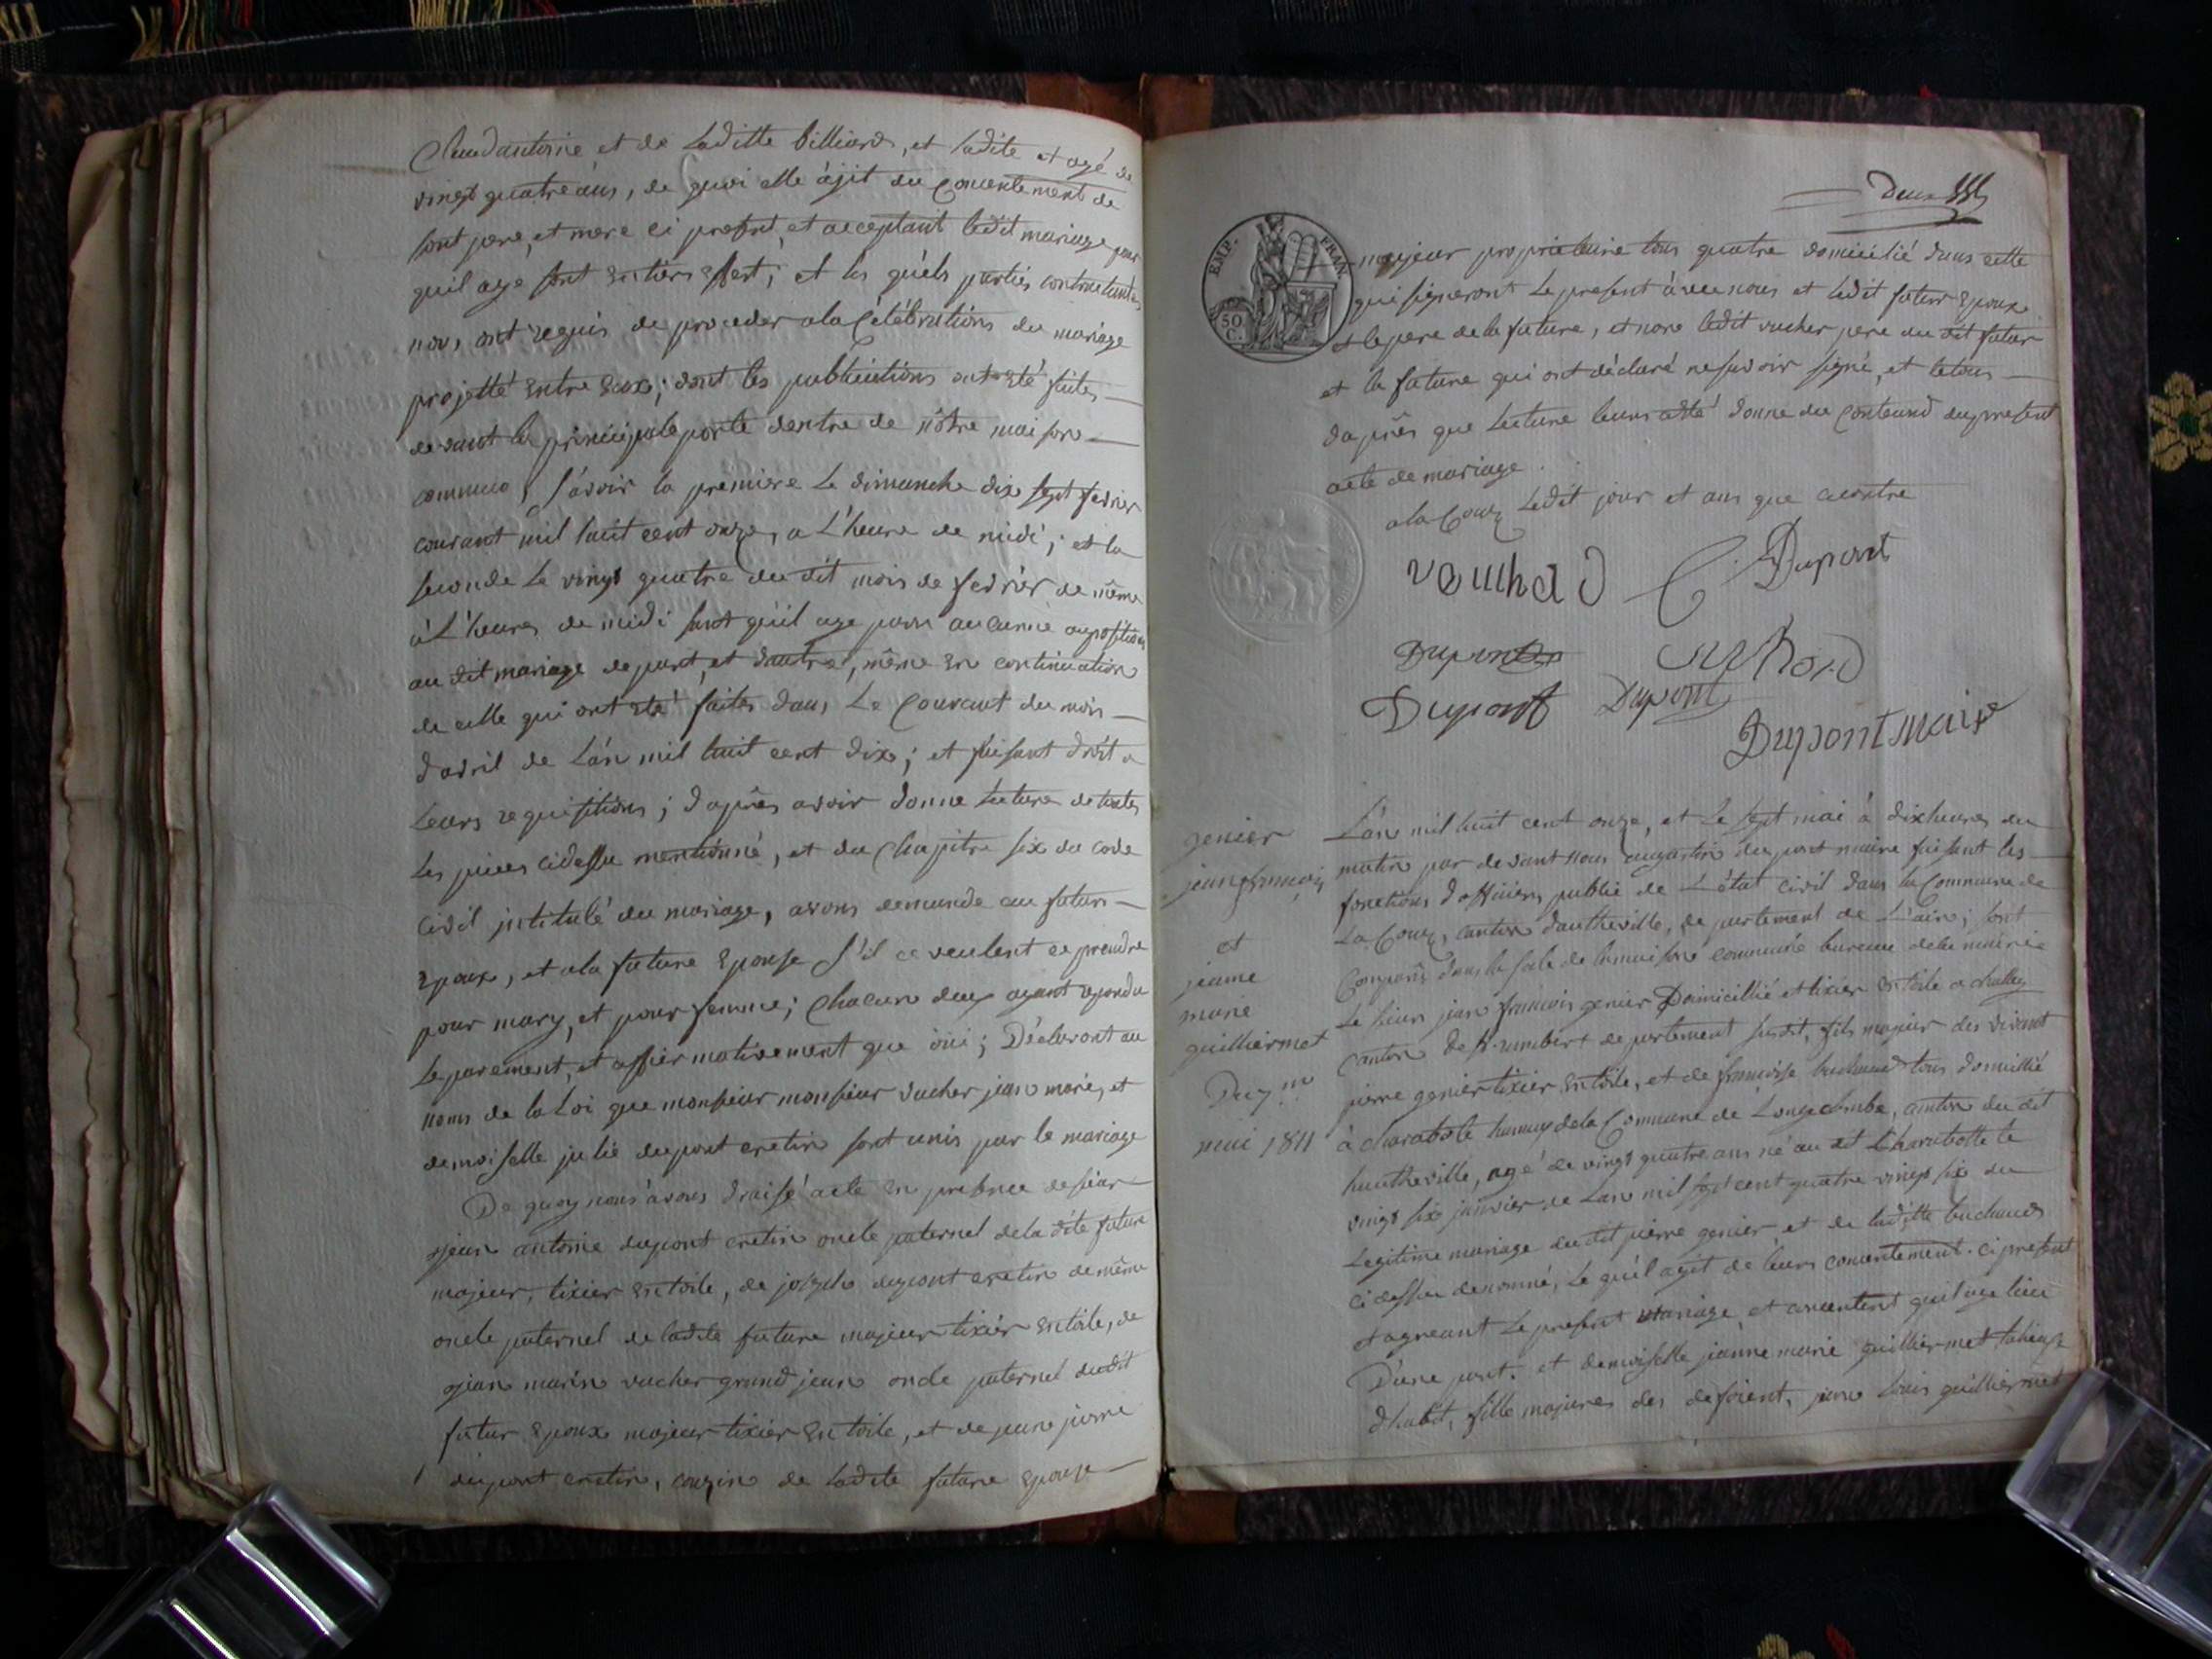 Claudantoine et de Laditte billiard, et ladite et agé de
vingt quatre ans, de quoi elle agit du Consentement de
sont pere, et mere ci present, et acceptant ledit mariage pour
quil aye sont entiers effert; et les quels parties contractante
nous ont requis de proceder a la Célébrations du mariage
projetté entre Eux; dont les publications ont été faites
devant la principale porte dentre de nôtre maison
commune, savoir la premiere Le dimanche dix sept fevrier
courant mil huit cent onze, a L'heure de midi; et la
seconde Le vingt quatre du dit mois de fevrier de même
à L'heures de midi sant quil aye parv aucunne oppositions
au dit mariage de part, et dautre, même En continuation
de celle qui ont eté faites dans Le Courant du mois
davril de Lan mil huit cent dix; et faisant droit a
Leurs requisitions; daprês avoir donne Lecture de toutes
Les pieces cidessu mentionné, et du Chapitre six du code
Civil intitulé du mariage, avons demande au futur
Epoux, et ala future Epouse S'il ce veulent ce prendre
pour mary, et pour femme; chacun deux ayant repondu
separement, et affiermativement que oüi; Déclaront au
noms de la Loi que monsieur monsieur vucher jean marie, et
demoiselle julie dupont cretin sont unis par le mariage
De quoy nous avons draisé acte En presence de siear
jean antoine dupont cretin oncle paternel de la dite future
majeur, tixier En toile, de joseph dupont cretin de même
oncle paternel de ladite future majeur tixier En toile, de
jean marin vucher grand jean oncle paternel dudit
futur Epoux majeur tixier En toile, et de jean pierre
dupont cretin, couzin de ladite future Epouse
Deux
EMP. FRAN.
50 C.
majeur proprietaire tous quatre domicilié dans cette
qui signeront Le present avec nous et ledit futur Epoux
et le pere de la future, et non ledit vucher pere du dit futur
et la future qui ont déclaré ne savoir signé, et letous
daprês que Lecture leurs a été donne du Contenud du present
acte de mariage.
a la Couz Ledit jour et ans que cicontre
C. Dupont
Dupont
Dupont Dupont
Dupont maire
genier
jean francois
et
jeanne
marie
guilliermet
Du 7me
mai 1811
L'an mil huit cent onze, et Le sept mai à dix heures du
matin par devant nous augustin dupont maire faisant les
fonctions d'officiers public de L'état civil dans la Commune de
La Couz, canton dautheville, departement de L'ain; sont
Comparûs dans la sale de la maison commune bureau de la mairie
Le sieur jean francois genier Domicillié et tixier En toile a chaley
canton de st. rambert departement susdit, fils majeur des vivant
pierre genier tixier En toile, et de francoise buchaud tous domicillié
à charabote hameau de la Commune de Longecombe, canton du dit
hautheville, agé de vingt quatre ans né au dit Charabotte le
vingt six janvier de Lan mil sept cent quatre vingt six du
Legitime mariage du dit pierre genier et de laditte buchaud
ci dessu denommé, Le quel agit de leurs consentement. ci present
et agreant Le present Mariage, et consentent quil aye lieu
D'une part. et demoiselle jeanne marie guilliermet talieuse
dhabit, fille majeures des defoient, jean Louis guilliermet